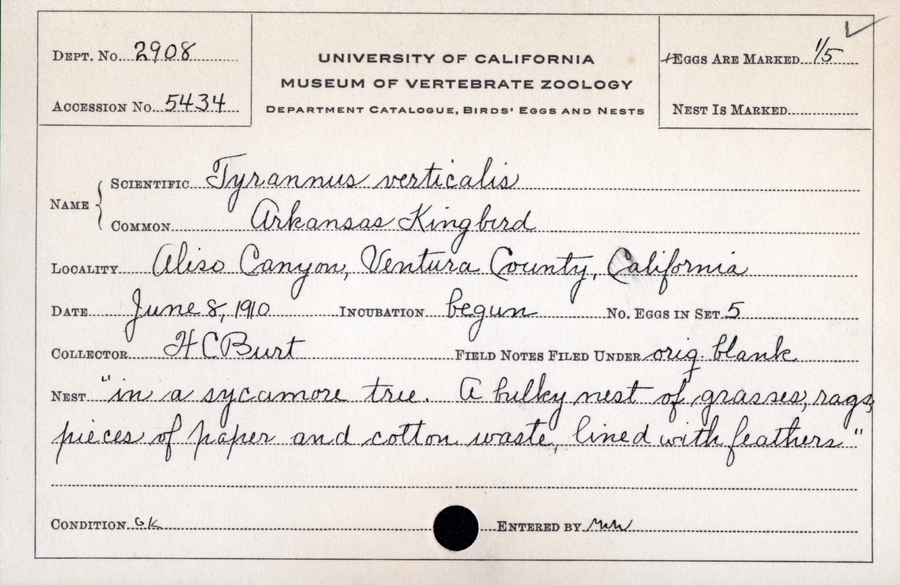 Dept. No. 2908
Accession No. 5434
UNIVERSITY OF CALIFORNIA
MUSEUM OF VERTEBRATE ZOOLOGY
Department Catalogue, Birds' Eggs and Nests
Eggs Are Marked 1/5
Nest Is Marked
Name
Scientific Tyrannus verticalis
Common Arkansas Kingbird
Locality Aliso Canyon, Ventura County, California
Date June 8, 1910 Incubation begun No. Eggs in Set 5
Collector H C Burt Field Notes Filed Under orig. blank
Nest "in a sycamore tree. A bulky nest of grasses, rags,
pieces of paper and cotton waste, lined with feathers"
Condition GK Entered by